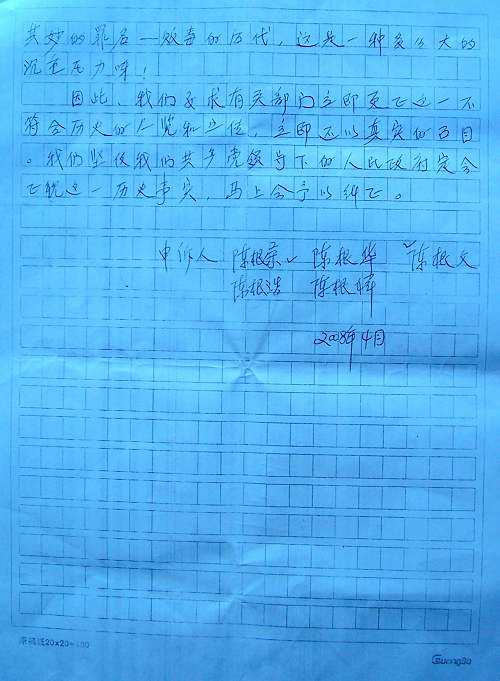 其妙的罪名—败者的后代，这是一种多么大的
沉重压力呀！
因此，我们要求有关部门立即更正这一不
符合历史的 和 ，立即还以真实的面目
。我们坚信我们共产党领导下的人民政府定会
正视这一历史事实，马上会予以纠正。
申诉人 陈根荣 陈根华 陈根文
陈根浩 陈根
2008年4月
原稿纸20×20=400
Guangbo